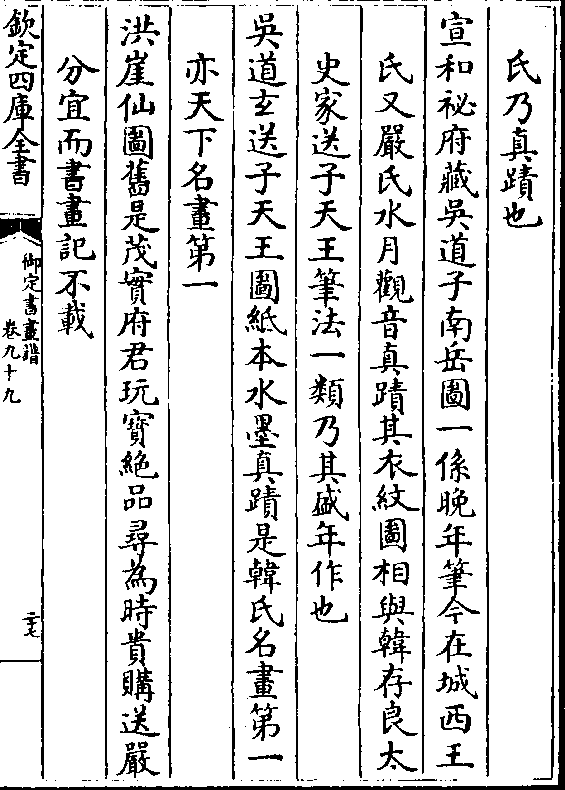 氏乃真蹟也
宣和祕府藏吳道子南岳圖一係晚年筆今在城西王
氏又嚴氏水月觀音真蹟其衣紋圖相與韓存良太
史家送子天王筆法一類乃其盛年作也
吳道玄送子天王圖紙本水墨真蹟是韓氏名畫第一
亦天下名畫第一
洪崖仙圖舊是茂實府君玩寶絶品尋為時貴購送嚴
分宜而書畫記不載
欽定四庫全書
御定書畫譜
卷九十九
二十七